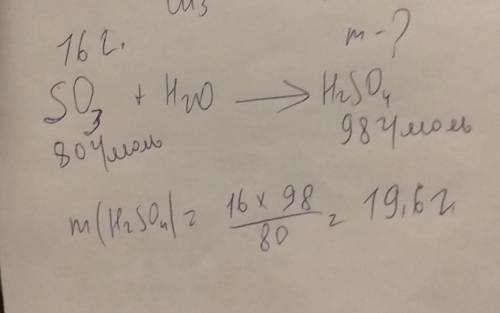 16 г.
m - ?
SO₃ + H₂O ⟶ H₂SO₄
80 г/моль
98 г/моль
m(H₂SO₄) = 16 × 98 / 80 = 19,6 г.